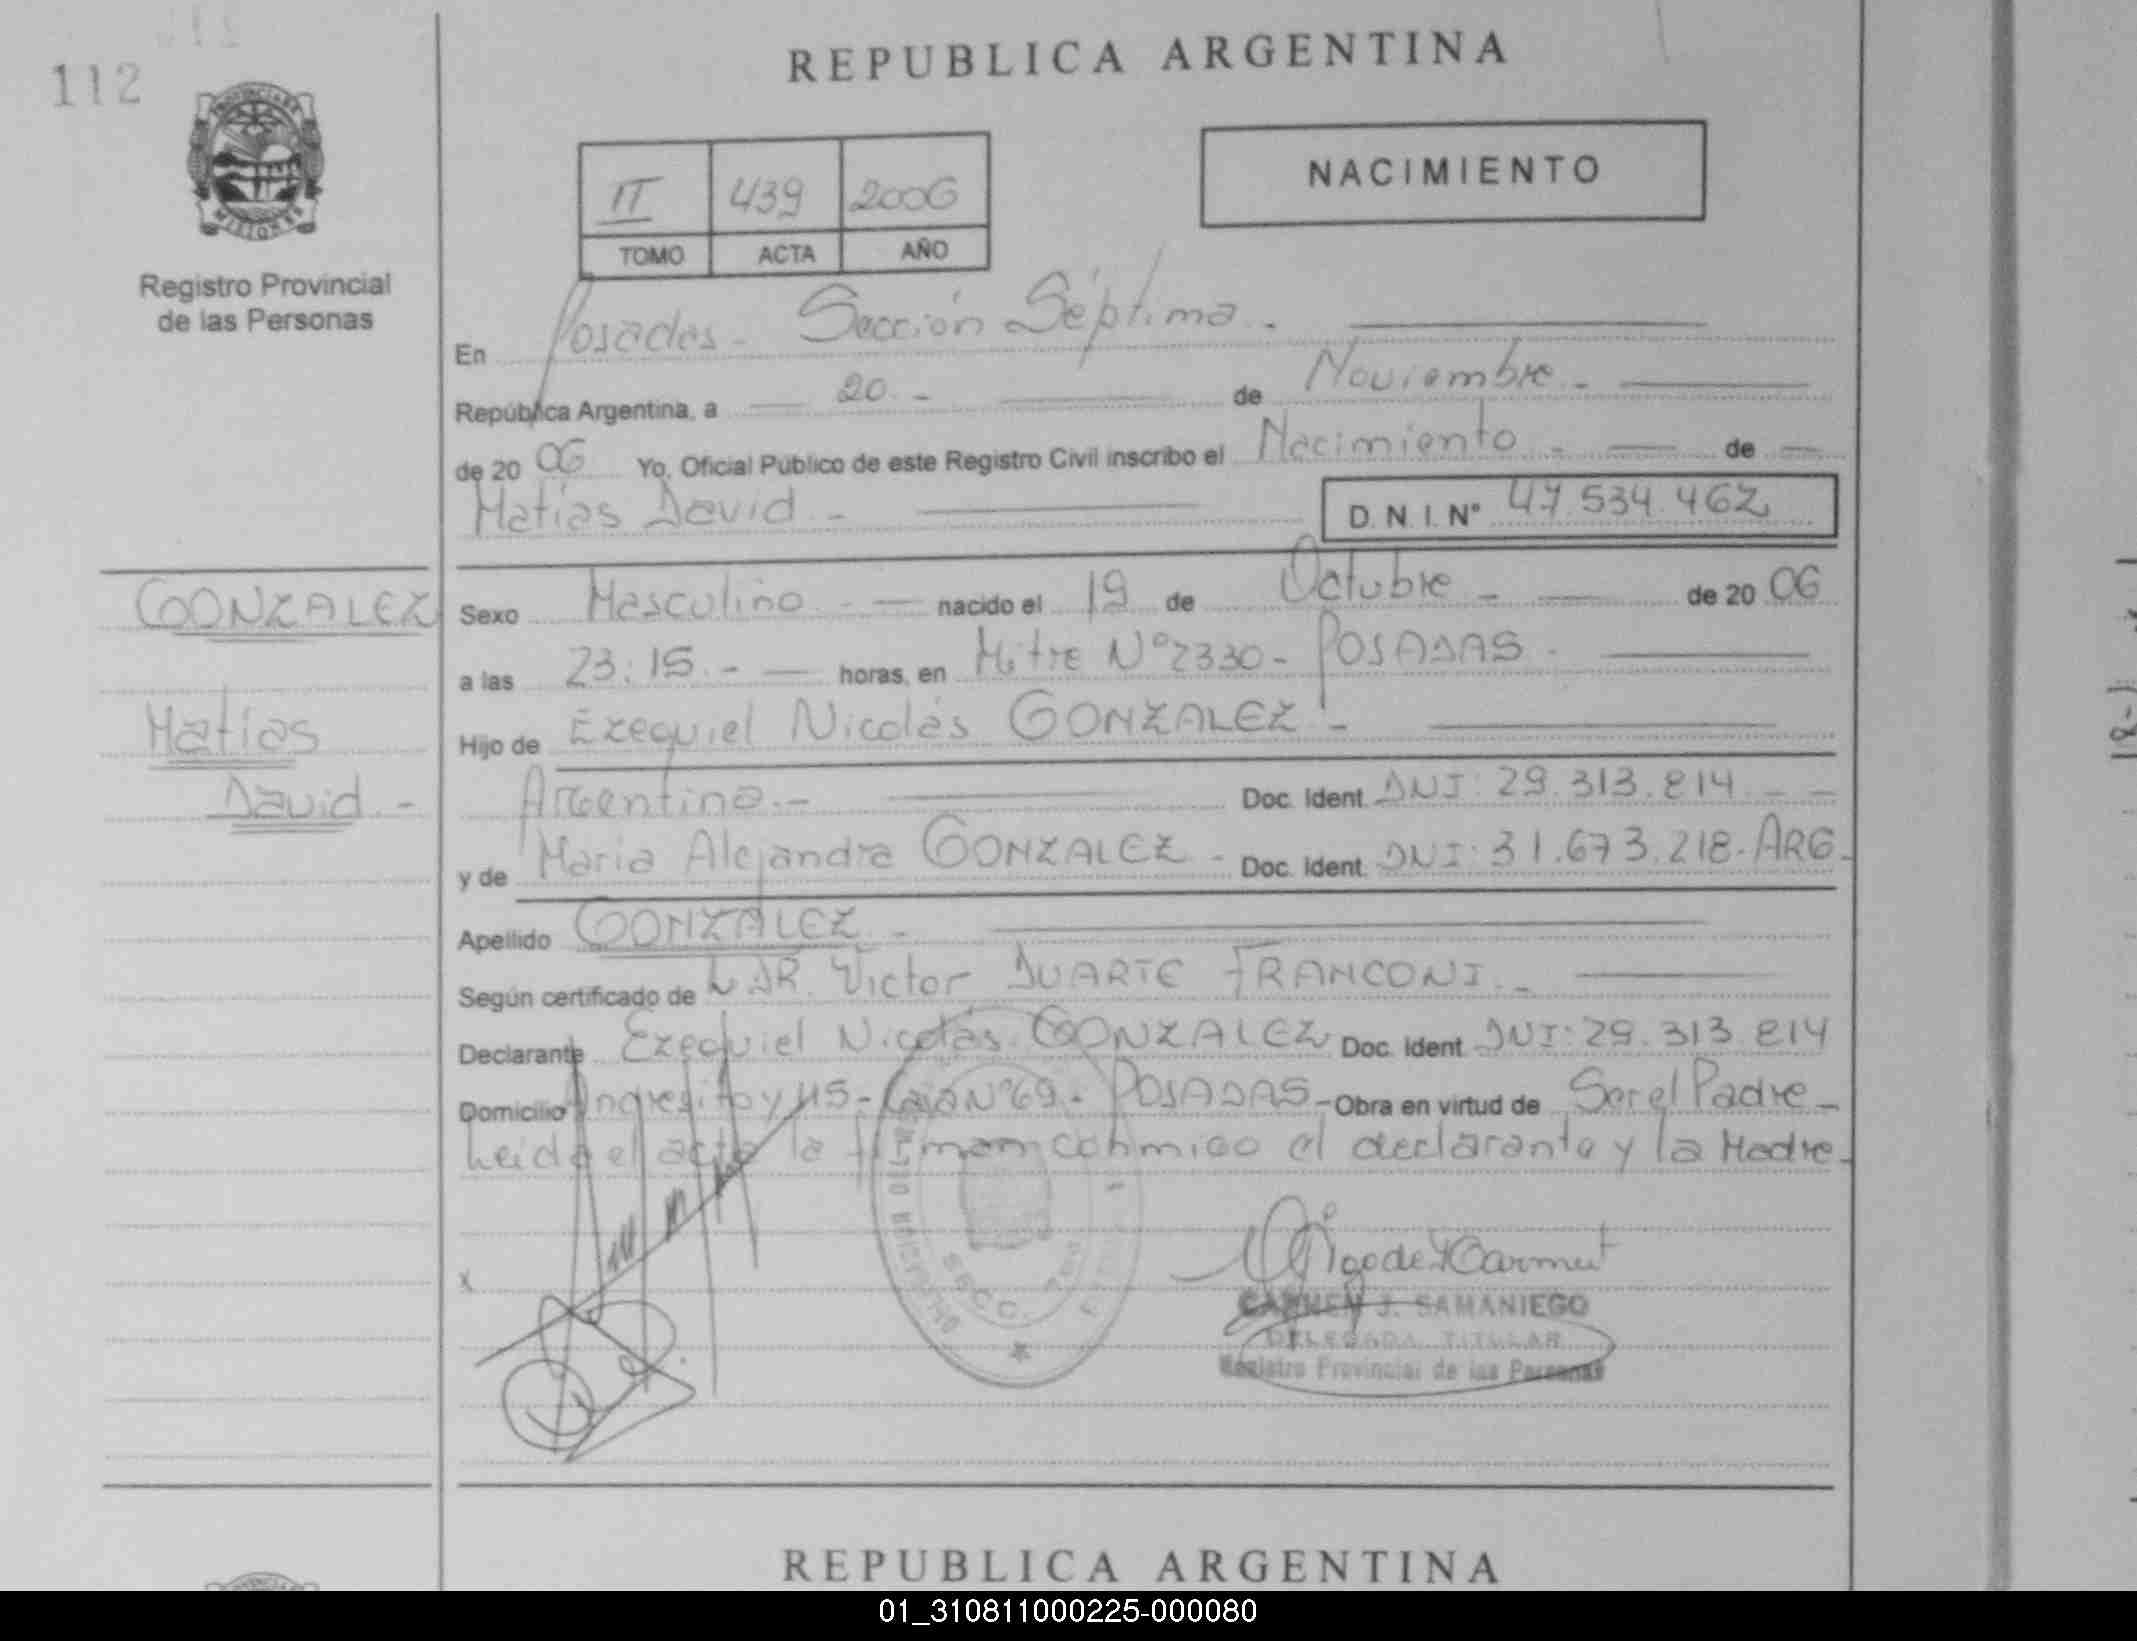 112
PROVINCIA DE
MISIONES
Registro Provincial
de las Personas
REPUBLICA ARGENTINA
II 439 2006
TOMO ACTA AÑO
NACIMIENTO
En Posadas - Sección Séptima. -
República Argentina, a 20. - de Noviembre. -
de 20 06 Yo, Oficial Público de este Registro Civil inscribo el Nacimiento. - de
Matías David. -
D. N. I. N° 47.534.462
GONZALEZ
Matías
David. -
Sexo Masculino. - nacido el 19 de Octubre - de 20 06
a las 23:15. - horas, en Mitre N° 2330 - POSADAS -
Hijo de Ezequiel Nicolás GONZALEZ -
Argentino. - Doc. Ident. DNI: 29.313.814 - -
y de Maria Alejandra GONZALEZ - Doc. Ident. DNI: 31.673.218-ARG-
Apellido GONZALEZ -
Según certificado de DR. Victor DUARTE FRANCONI. -
Declarante Ezequiel Nicolás GONZALEZ Doc. Ident. DNI: 29.313.814
Domicilio y 115 - N° 69 - POSADAS - Obra en virtud de Ser el Padre -
Leida el acta la firman conmigo el declarante y la Madre -
x
SECC. 7ma
CARMEN J. SAMANIEGO
DELEGADA TITULAR
Registro Provincial de las Personas
REPUBLICA ARGENTINA
01_310811000225-000080